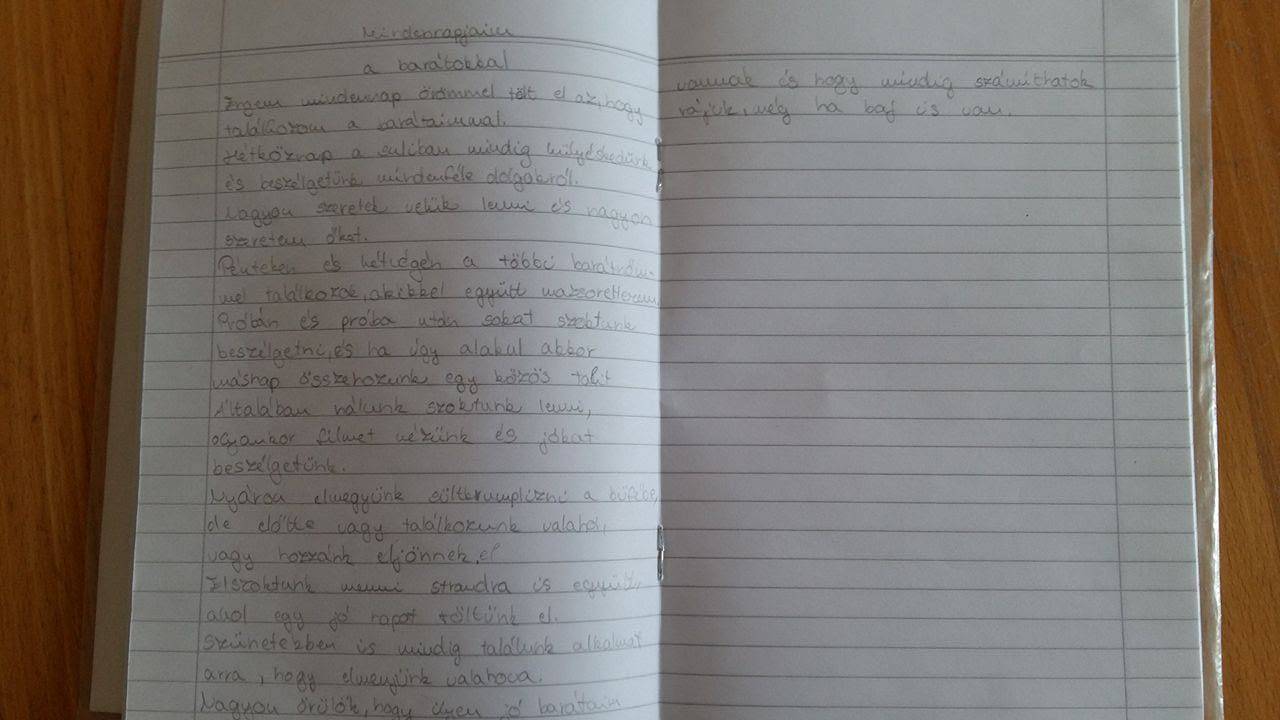 Mindennapjaim
a barátokkal
Engem mindennap örömmel tölt el az, hogy
találkozom a barátaimmal.
Hétköznap a suliban mindig hülyéskedünk
és beszélgetünk mindenféle dolgokról.
Nagyon szeretek velük lenni és nagyon
szeretem őket.
Pénteken és hétvégén a többi barátnőm-
mel találkozok, akikkel együtt mazsorettezem.
Próbán és próba után sokat szoktunk
beszélgetni, és ha úgy alakul akkor
másnap összehozunk egy közös talit
Általában nálunk szoktunk lenni,
olyankor filmet nézünk és jókat
beszélgetünk.
Nyáron elmegyünk sültkrumplizni a büfébe,
de előtte vagy találkozunk valahol,
vagy hozzánk eljönnek el
Elszoktunk menni strandra is együtt,
ahol egy jó napot töltünk el.
Szünetekben is mindig találunk alkalmat
arra, hogy elmenjünk valahova.
Nagyon örülök, hogy ilyen jó barátaim
vannak és hogy mindig számíthatok
rájuk, még ha baj is van.